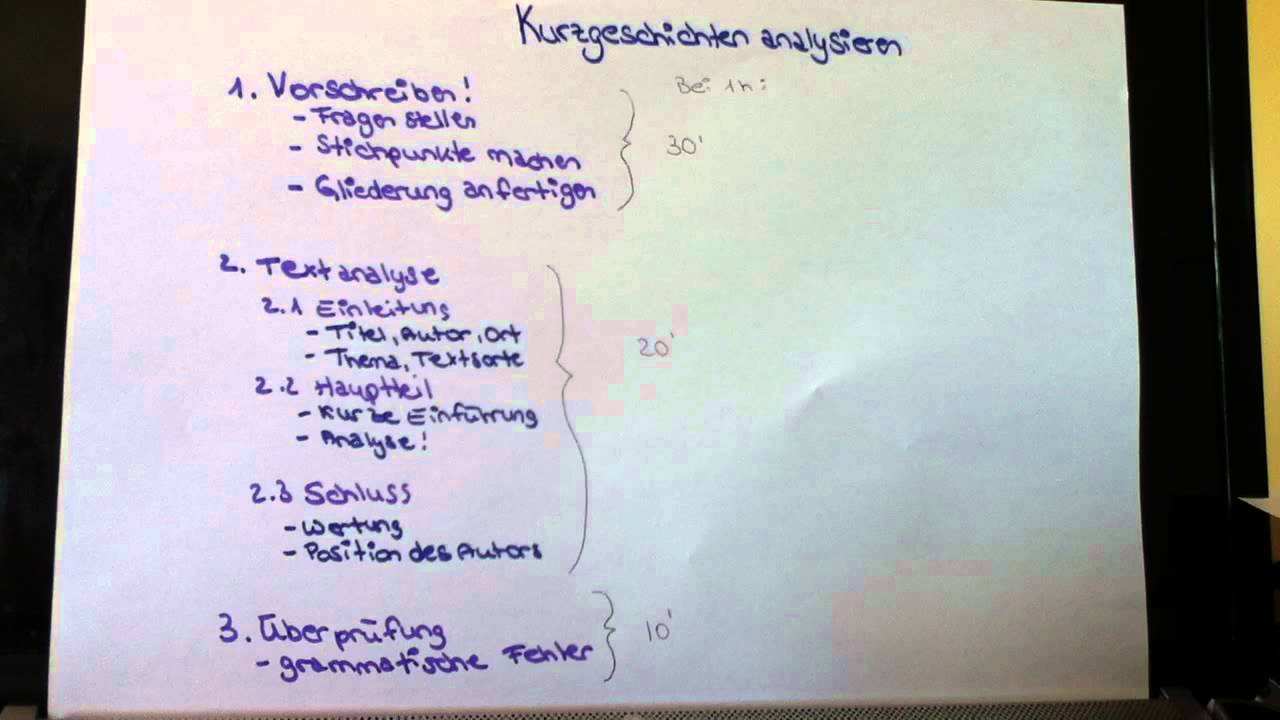 Kurzgeschichten analysieren
Bei 1h:
1. Vorschreiben!
- Fragen stellen
- Stichpunkte machen
30'
- Gliederung anfertigen
2. Textanalyse
2.1 Einleitung
- Titel, Autor, Ort
- Thema, Textsorte
20'
2.2 Hauptteil
- Kurze Einführung
- Analyse!
2.3 Schluss
- Wertung
- Position des Autors
3. Überprüfung
10'
- grammatische Fehler